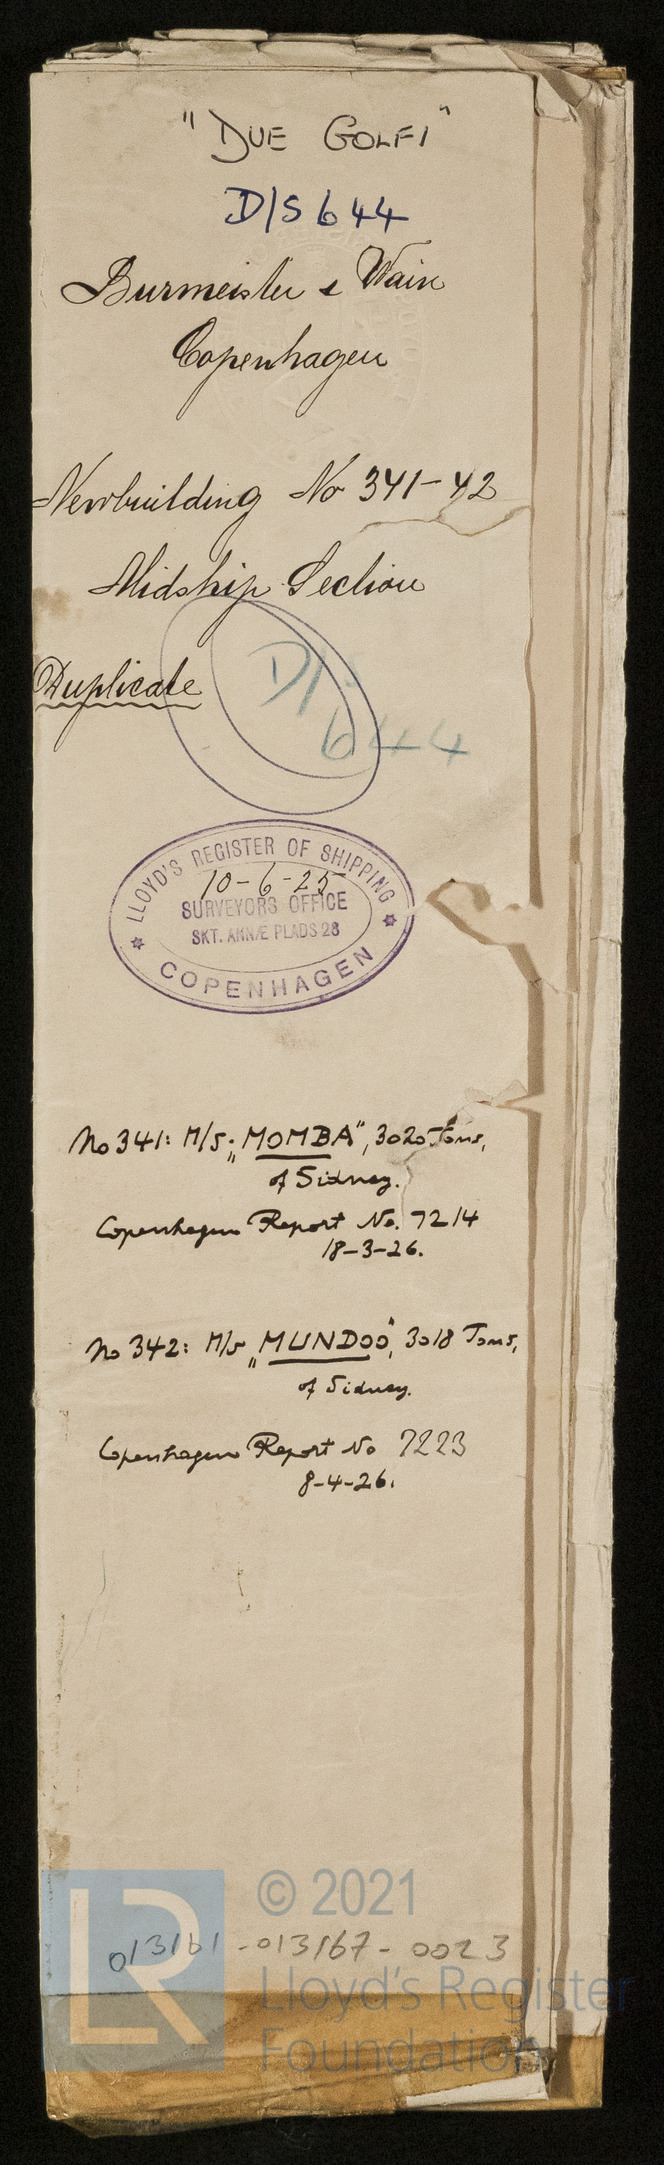 "DUE GOLFI"
D/S 644
Burmeister & Wain
Copenhagen
Newbuilding No 341-42
Midship Section
Duplicate
D/S
644
LLOYD'S REGISTER OF SHIPPING
10-6-25
SURVEYORS OFFICE
SKT. ANNÆ PLADS 28
COPENHAGEN
No 341: M/S. „MOMBA", 3020 Tons,
of Sidney.
Copenhagen Report No. 7214
18-3-26.
No 342: M/S „MUNDOO", 3018 Tons,
of Sidney.
Copenhagen Report No 7223
8-4-26.
© 2021
013161-013167-0023
LR
Lloyd's Register
Foundation